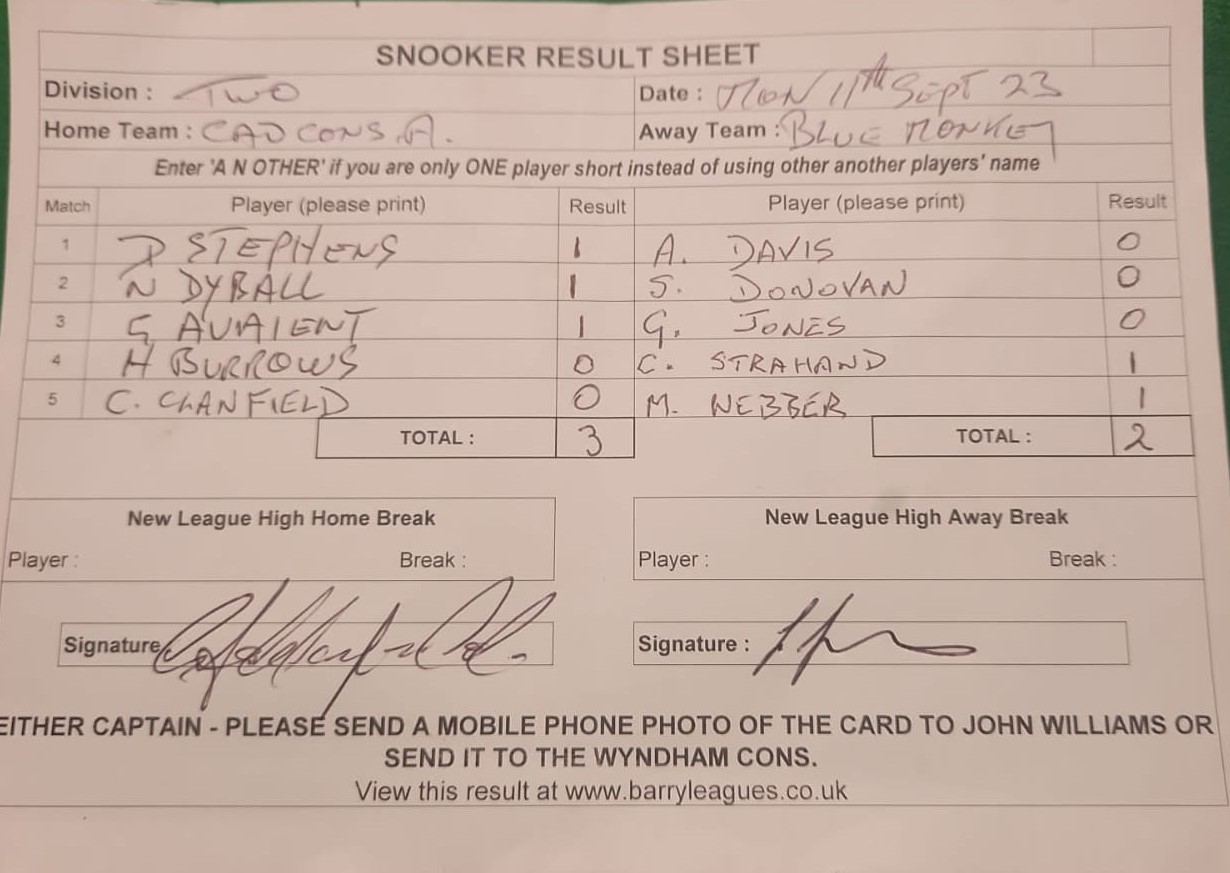 SNOOKER RESULT SHEET
Division : TWO Date : MON 11th SEPT 23
Home Team : CAD CONS. A. Away Team : BLUE MONKEY
Enter 'A N OTHER' if you are only ONE player short instead of using other another players' name
Match Player (please print) Result Player (please print) Result
1 D STEPHENS 1 A. DAVIS 0
2 N DYBALL 1 S. DONOVAN 0
3 G AVAIENT 1 G. JONES 0
4 H BURROWS 0 C. STRAHAND 1
5 C. CLANFIELD 0 M. WEBBER 1
TOTAL : 3 TOTAL : 2
New League High Home Break New League High Away Break
Player : Break : Player : Break :
Signature Signature :
EITHER CAPTAIN - PLEASE SEND A MOBILE PHONE PHOTO OF THE CARD TO JOHN WILLIAMS OR
SEND IT TO THE WYNDHAM CONS.
View this result at www.barryleagues.co.uk